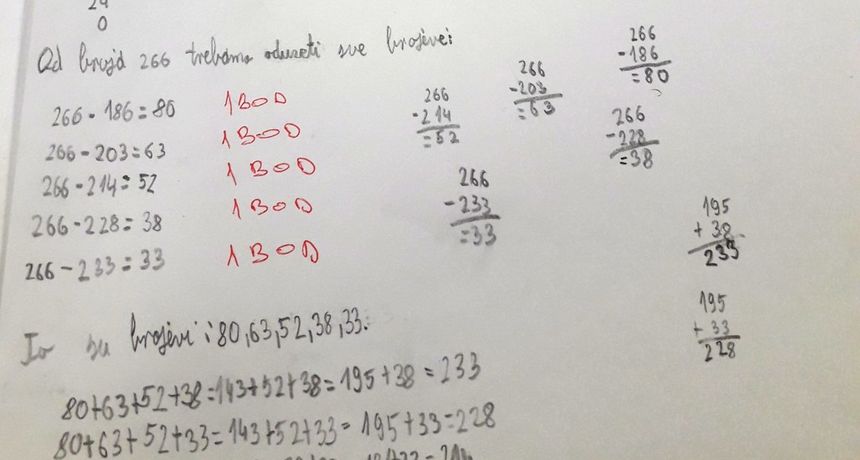 24
0
Od broja 266 trebamo oduzeti sve brojeve:
266 - 186 = 80 1 BOD
266 - 203 = 63 1 BOD
266 - 214 = 52 1 BOD
266 - 228 = 38 1 BOD
266 - 233 = 33 1 BOD
266
-214
=52
266
-203
=63
266
-186
=80
266
-228
=38
266
-233
=33
195
+ 38
233
195
+ 33
228
To su brojevi: 80, 63, 52, 38, 33.
80+63+52+38=143+52+38=195+38=233
80+63+52+33=143+52+33=195+33=228